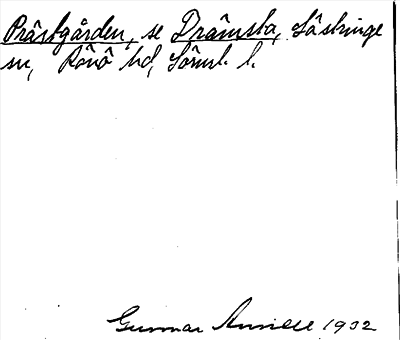 Prästgården, se Drämsta, Lästringe
sn, Rönö hd, Sörml. l.
Gunnar Amnell 1932